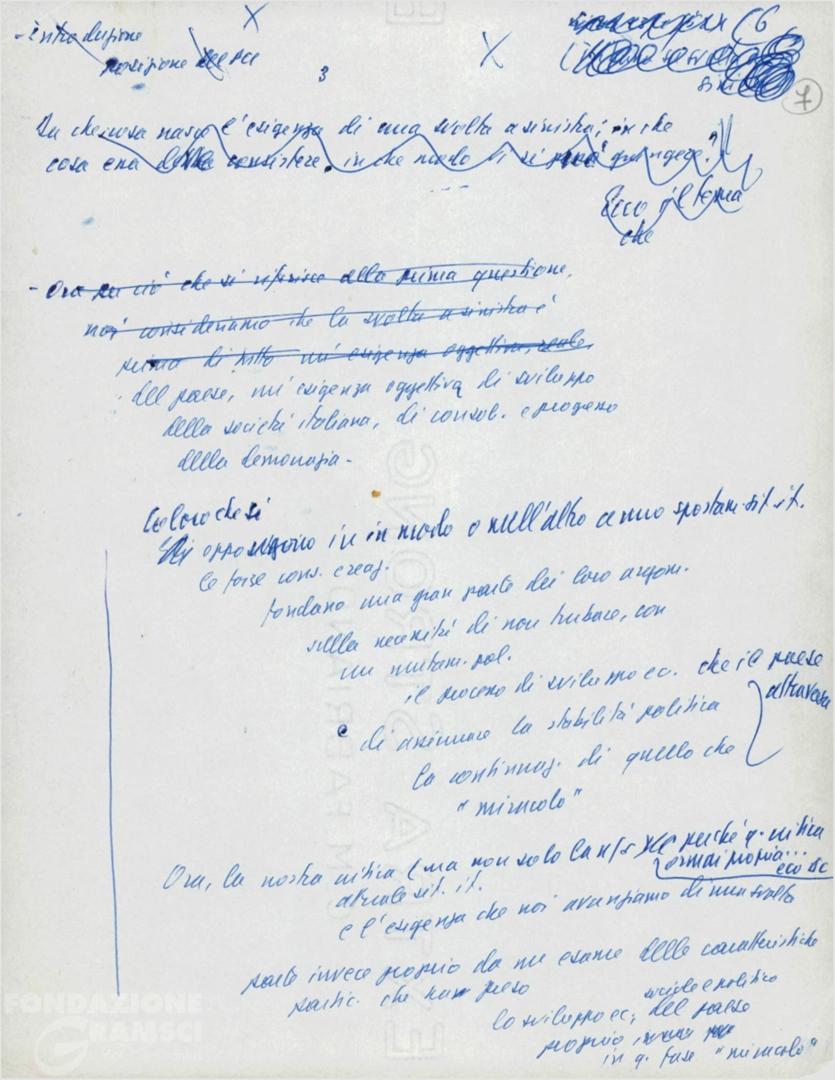 - introduzione
posizione del PCI
3
7
Da che cosa nasce l'esigenza di una svolta a sinistra; in che
cosa essa deve consistere, in che modo vi si può giungere?
Ecco il tema
che
- Ora per ciò che si riferisce alla prima questione,
noi consideriamo che la svolta a sinistra è
prima di tutto un'esigenza oggettiva, reale,
del paese, un'esigenza oggettiva di sviluppo
della società italiana, di consol. e progresso
della democrazia -
Coloro che si
oppongono in un modo o nell'altro a uno spostam. sit. it.
le forze cons. e reaz.
fondano una gran parte dei loro argom.
sulla necessità di non turbare, con
un mutam. pol.
il processo di sviluppo ec. che il paese
attraversa
e di assicurare la stabilità politica
la continuaz. di quello che
"miracolo"
Ora, la nostra critica (ma non solo la ns perché q. critica
ormai propria...
eco DC
attuale sit. it.
e l'esigenza che noi avanziamo di una svolta
parte invece proprio da un esame delle caratteristiche
partic. che han preso
lo sviluppo ec., sociale e politico
del paese
proprio
in q. fase "miracolo"
FONDAZIONE
GRAMSCI